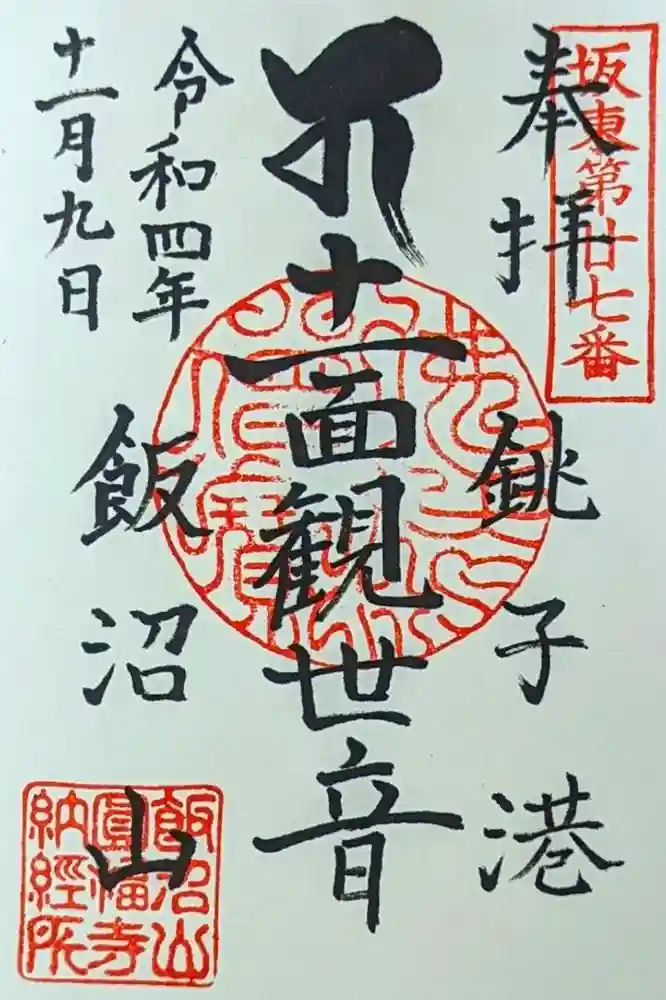 坂東第廿七番
奉拝
銚子港
十一面観世音
令和四年
十一月九日
飯沼山
飯沼山
圓福寺
納經所